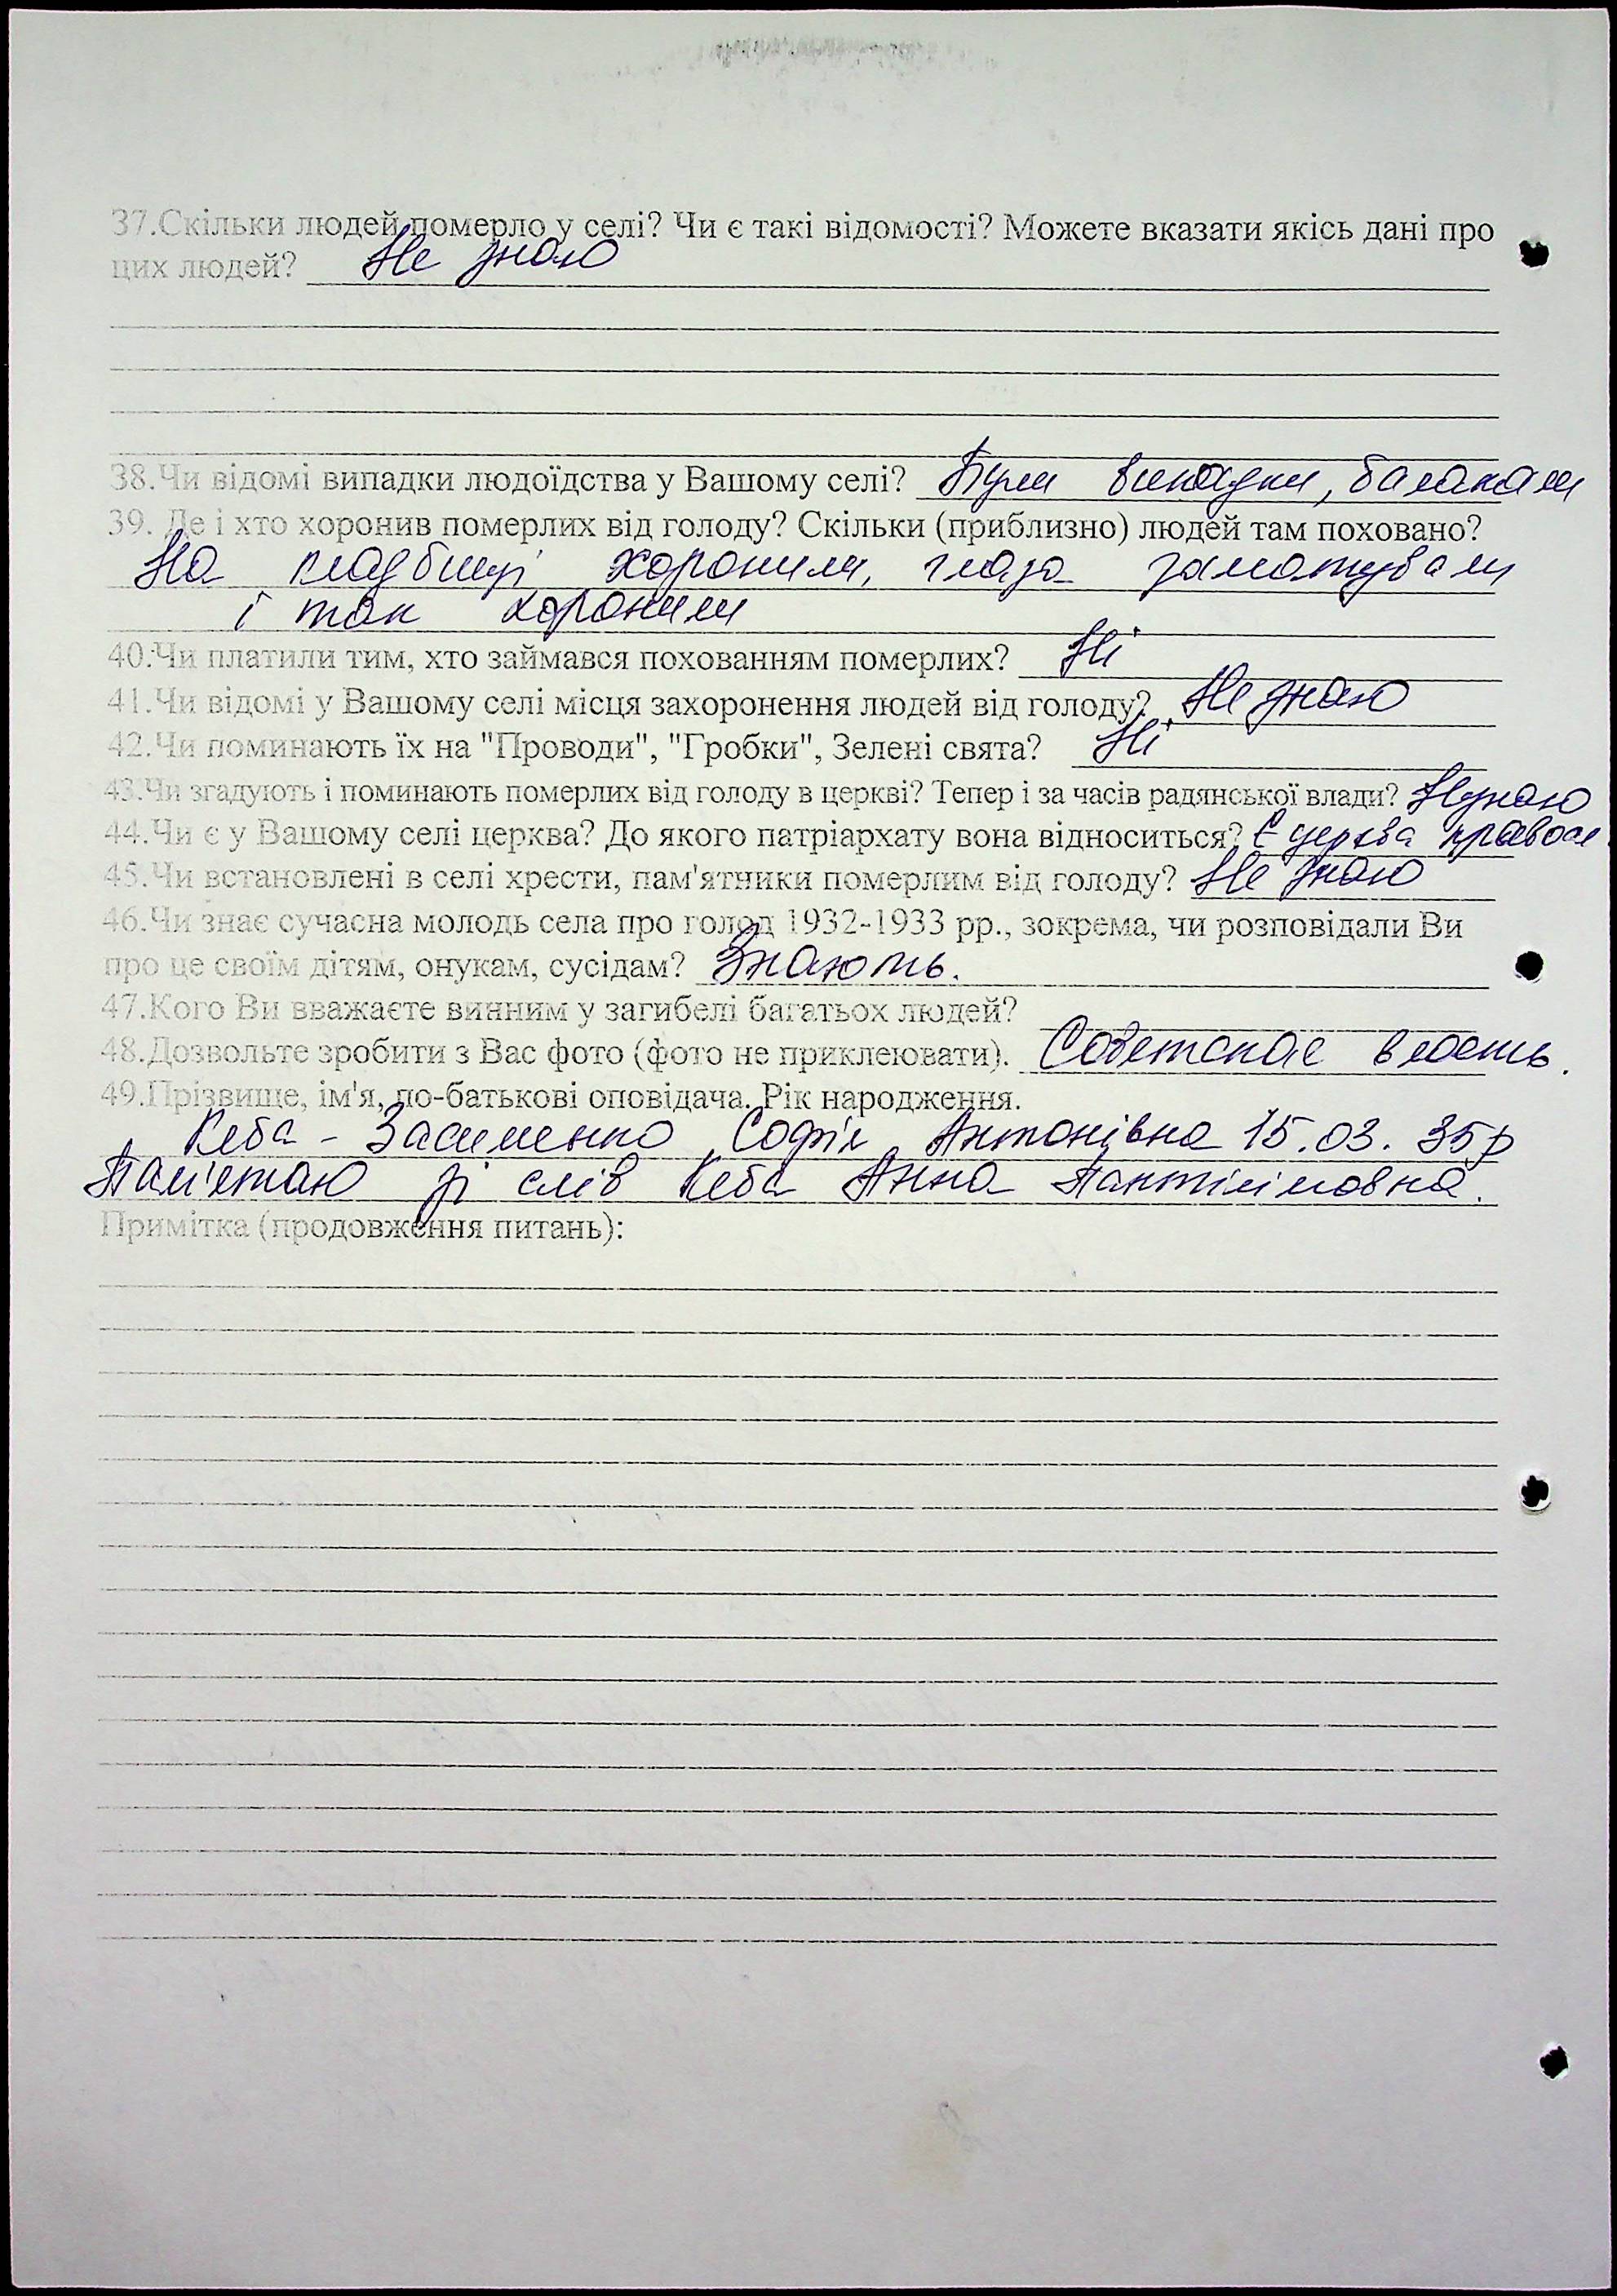 37.Скільки людей померло у селі? Чи є такі відомості? Можете вказати якісь дані про
цих людей? Не знаю
38.Чи відомі випадки людоїдства у Вашому селі? Були випадки, балакали
39. Де і хто хоронив померлих від голоду? Скільки (приблизно) людей там поховано?
На кладбищі хоронили, глаза замотували
і так хоронили
40.Чи платили тим, хто займався похованням померлих? Ні
41.Чи відомі у Вашому селі місця захоронення людей від голоду? Не знаю
42.Чи поминають їх на "Проводи", "Гробки", Зелені свята? Ні
43.Чи згадують і поминають померлих від голоду в церкві? Тепер і за часів радянської влади? Незнаю
44.Чи є у Вашому селі церква? До якого патріархату вона відноситься? Є церква правосл.
45.Чи встановлені в селі хрести, пам'ятники померлим від голоду? Не знаю
46.Чи знає сучасна молодь села про голод 1932-1933 рр., зокрема, чи розповідали Ви
про це своїм дітям, онукам, сусідам? Знають.
47.Кого Ви вважаєте винним у загибелі багатьох людей?
48.Дозвольте зробити з Вас фото (фото не приклеювати). Советская власть.
49.Прізвище, ім'я, по-батькові оповідача. Рік народження.
Кеба - Засименко Софія Антонівна 15.03. 35р
Пам'ятаю зі слів Кеба Анна Пантілімовна.
Примітка (продовження питань):